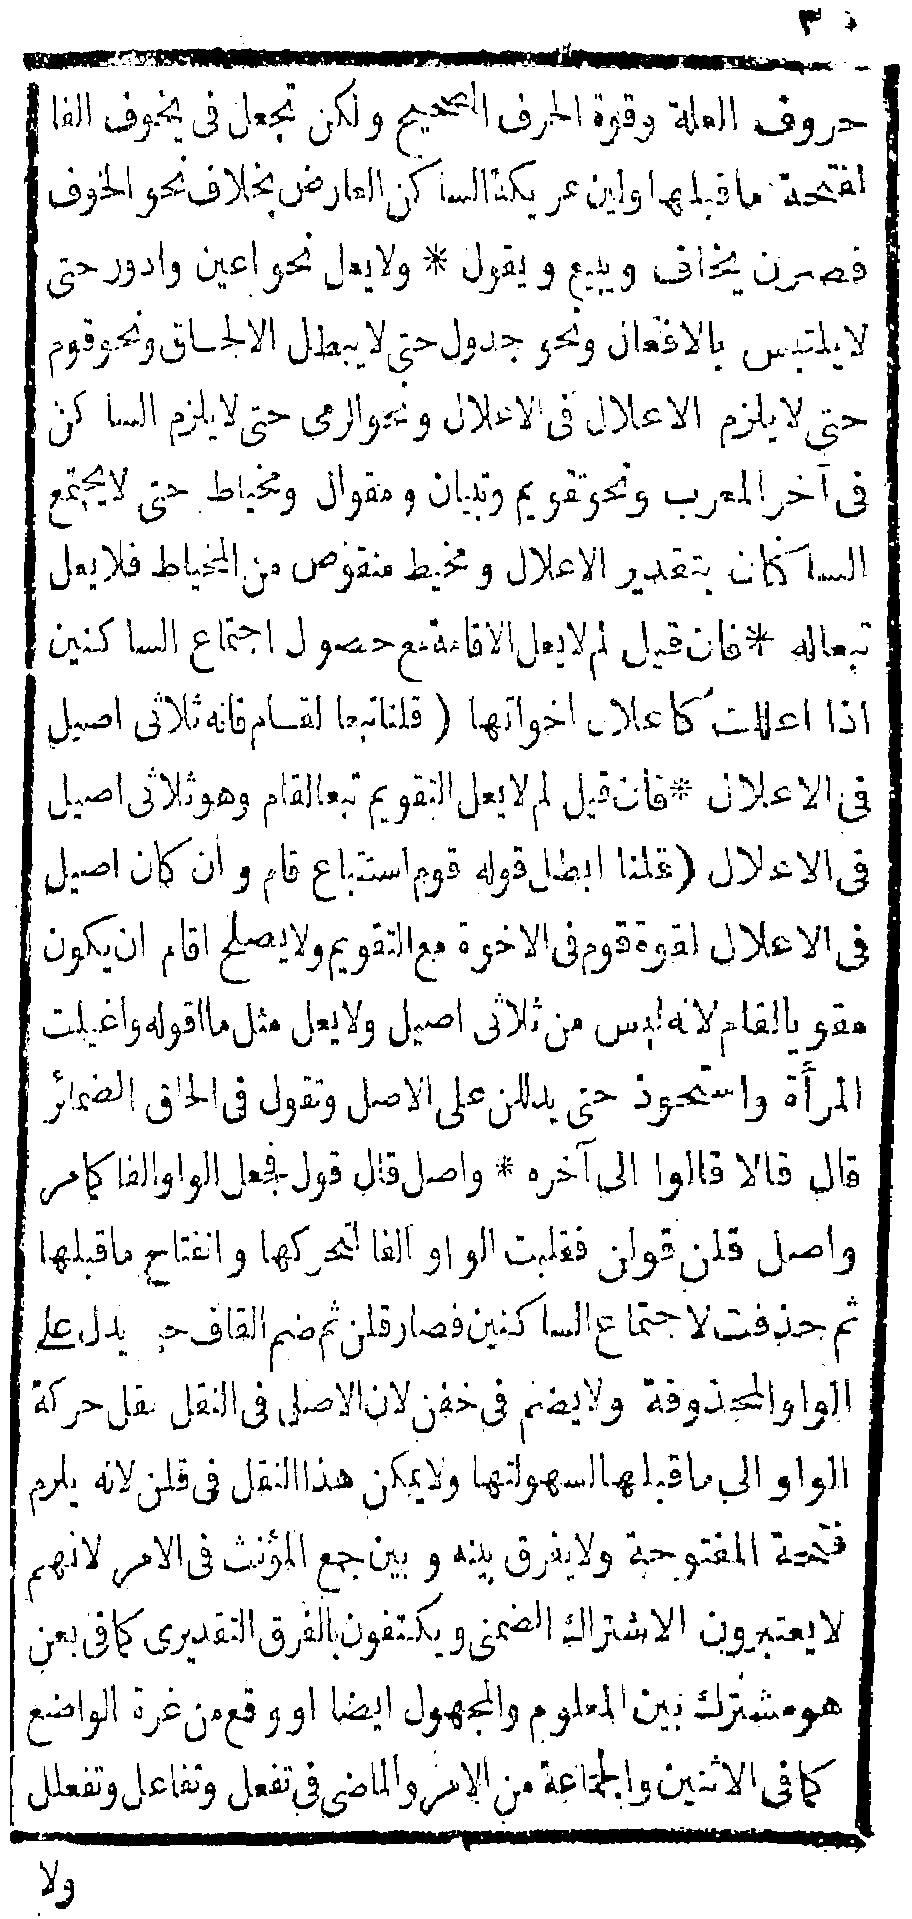 ٣٠
حروف العلة وقوة الحرف الصحيح ولكن تجعل فى يخوف الفا
لفتحة ما قبلها ولين عريكة الساكن العارض بخلاف نحو الخوف
فصرن يخاف ويبيع ويقول * ولا يعل نحو اعين وادور حتى
لا يلتبس بالافعال ونحو جدول حتى لا يبطل الالحاق ونحو قوم
حتى لا يلزم الاعلال فى الاعلال ونحو الرمى حتى لا يلزم الساكن
فى آخر المعرب ونحو تقويم وتبيان ومقوال ومخياط حتى لا يجتمع
الساكنان بتقدير الاعلال ومخيط منقوص من المخياط فلا يعل
تبعا له * فان قيل لم لا يعل الاقامة مع حصول اجتماع الساكنين
اذا اعللت كاعلال اخواتها ( قلنا تبعا لقام فانه ثلاثى اصيل
فى الاعلال * فان قيل لم لا يعل التقويم تبعا لقام وهو ثلاثى اصيل
فى الاعلال ( قلنا ابطل قوله قوم استتباع قام وان كان اصيل
فى الاعلال لقوة قوم فى الاخوة مع التقويم ولا يصلح اقام ان يكون
مقويا لقام لانه ليس من ثلاثى اصيل ولا يعل مثل ما اقوله واغيلت
المرأة واستحوذ حتى يدللن على الاصل وتقول فى الحاق الضمائر
قال قالا قالوا الى آخره * واصل قال قول فجعل الواو الفا كما مر
واصل قلن قولن فقلبت الواو الفا لتحركها وانفتاح ما قبلها
ثم حذفت لاجتماع الساكنين فصار قلن ثم ضم القاف حتى يدل على
الواو المحذوفة ولا يضم فى خفن لان الاصلى فى النقل نقل حركة
الواو الى ما قبلها لسهولتها ولا يمكن هذا النقل فى قلن لانه يلزم
فتحة المفتوحة ولا يفرق بينه وبين جمع المؤنث فى الامر لانهم
لا يعتبرون الاشتراك الضمنى ويكتفون بالفرق التقديرى كما فى بعن
هو مشترك بين المعلوم والمجهول ايضا او وقع من غرة الواضع
كما فى الاثنين والجماعة من الامر والماضى فى تفعل وتفاعل وتفعلل
ولا